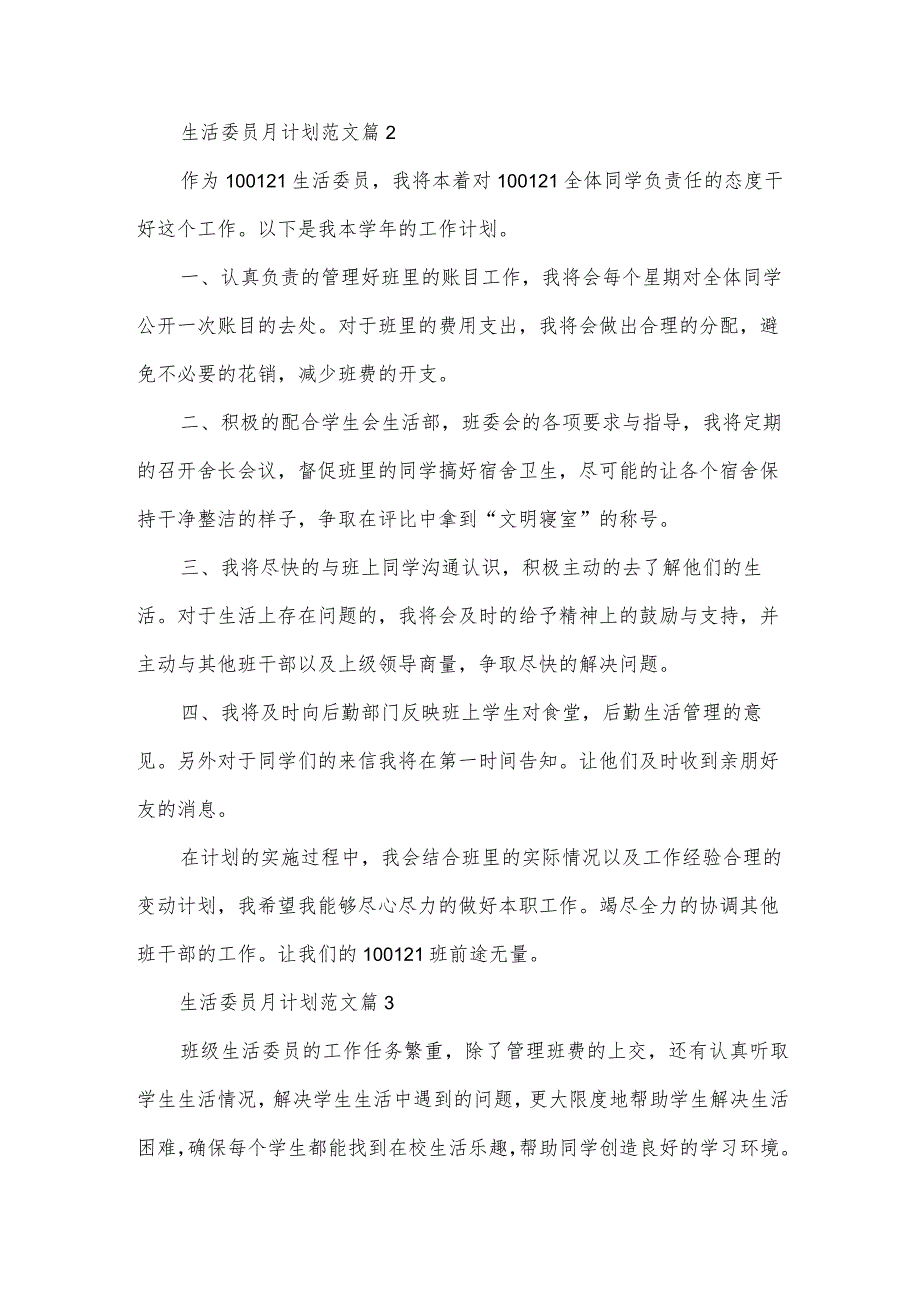 生活委员月计划范文篇2
作为100121生活委员，我将本着对100121全体同学负责任的态度干
好这个工作。以下是我本学年的工作计划。
一、认真负责的管理好班里的账目工作，我将会每个星期对全体同学
公开一次账目的去处。对于班里的费用支出，我将会做出合理的分配，避
免不必要的花销，减少班费的开支。
二、积极的配合学生会生活部，班委会的各项要求与指导，我将定期
的召开舍长会议，督促班里的同学搞好宿舍卫生，尽可能的让各个宿舍保
持干净整洁的样子，争取在评比中拿到“文明寝室”的称号。
三、我将尽快的与班上同学沟通认识，积极主动的去了解他们的生
活。对于生活上存在问题的，我将会及时的给予精神上的鼓励与支持，并
主动与其他班干部以及上级领导商量，争取尽快的解决问题。
四、我将及时向后勤部门反映班上学生对食堂，后勤生活管理的意
见。另外对于同学们的来信我将在第一时间告知。让他们及时收到亲朋好
友的消息。
在计划的实施过程中，我会结合班里的实际情况以及工作经验合理的
变动计划，我希望我能够尽心尽力的做好本职工作。竭尽全力的协调其他
班干部的工作。让我们的100121班前途无量。
生活委员月计划范文篇3
班级生活委员的工作任务繁重，除了管理班费的上交，还有认真听取
学生生活情况，解决学生生活中遇到的问题，更大限度地帮助学生解决生活
困难，确保每个学生都能找到在校生活乐趣，帮助同学创造良好的学习环境。